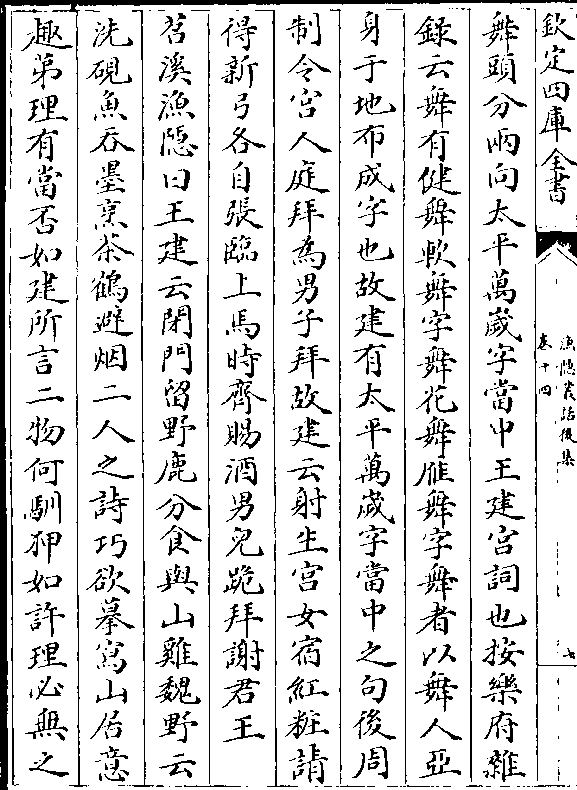 欽定四庫全書
漁隱叢話後集
卷十四
七
舞頭分兩向太平萬歲字當中王建宫詞也按樂府雜
錄云舞有健舞軟舞字舞花舞雁舞字舞者以舞人亞
身于地布成字也故建有太平萬歲字當中之句後周
制令宫人庭拜為男子拜故建云射生宫女宿紅粧請
得新弓各自張臨上馬時齊賜酒男兒跪拜謝君王
苕溪漁隠曰王建云閉門留野鹿分食與山雞魏野云
洗硯魚吞墨烹茶鶴避烟二人之詩巧欲摹寫山居意
趣第理有當否如建所言二物何馴狎如許理必無之